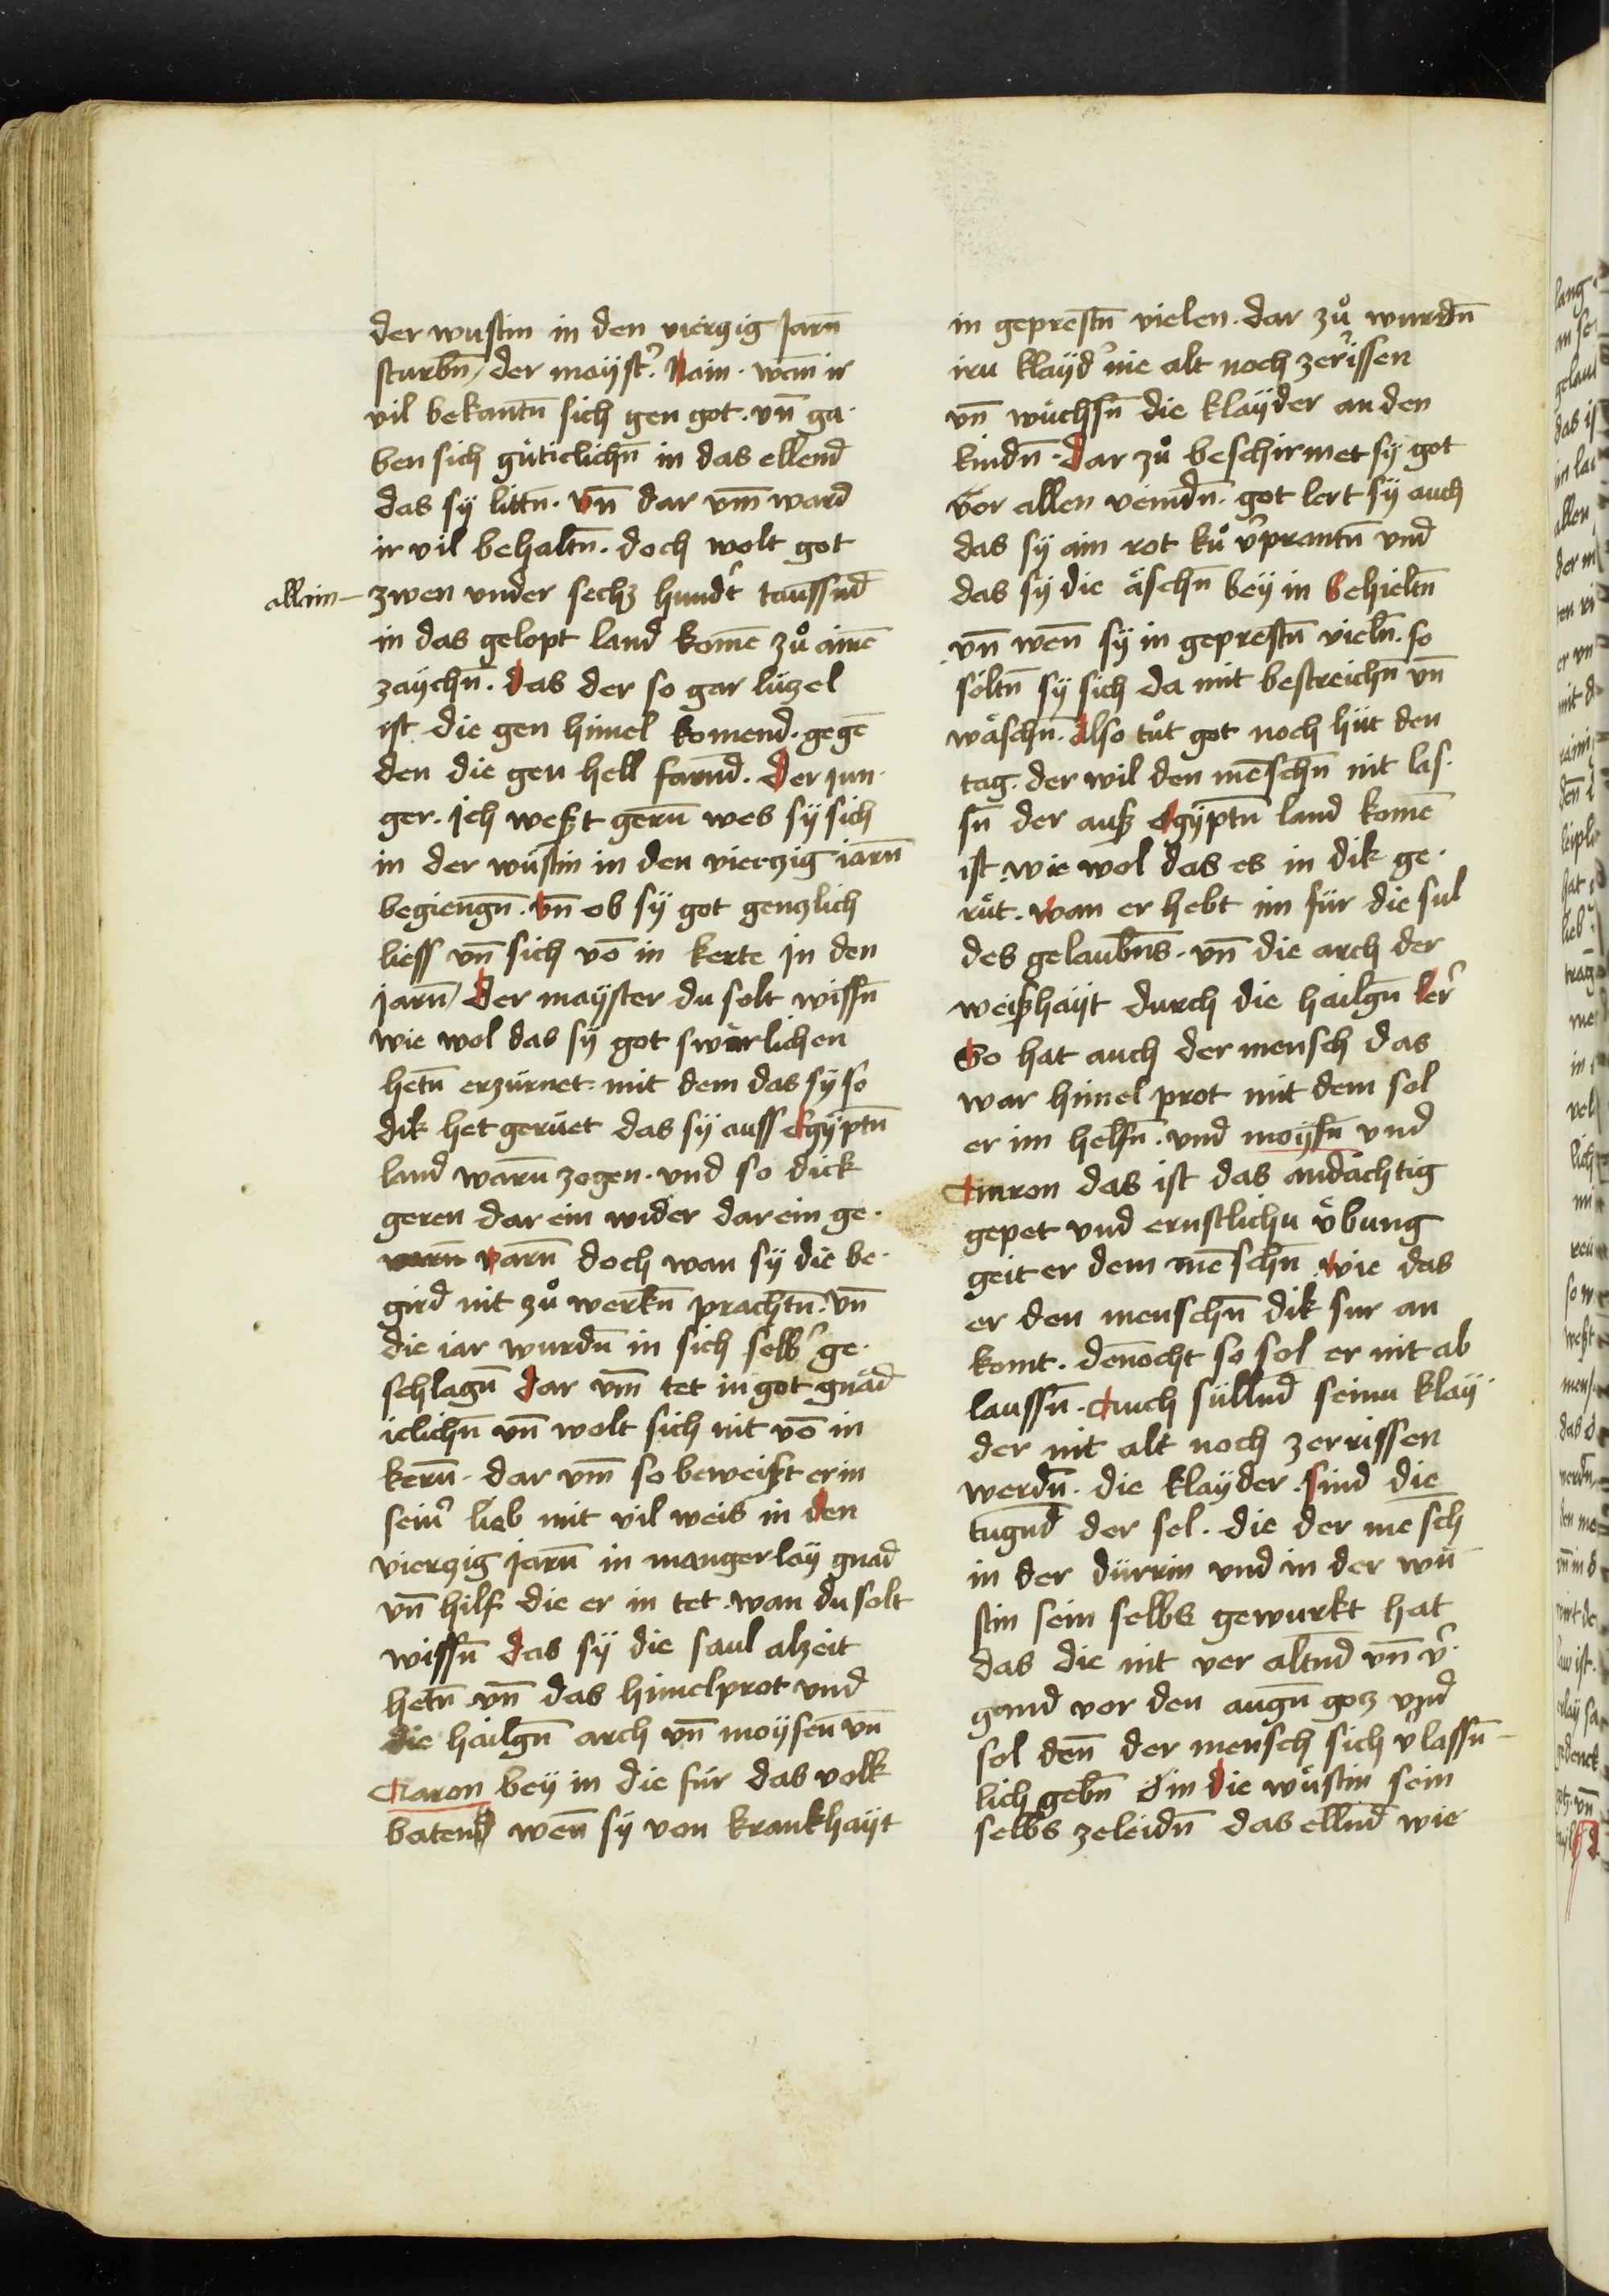 der wustin in den vierzig Jarn̄
sturbn̄ / der mayst᷑. Nain. wan̄ ir
vil bekantn̄ sich gen got. vn̄ ga-
ben sich güticlichn̄ in das ellend
das sÿ littn̄. vn̄ dar vm̄ ward
ir vil behaltn̄. doch wolt got
allain- zwen vnder sechz hundt᷑ taussnd̄
in das gelopt land komē zů ainē
zaychn̄. das der so gar lüzel
ist die gen himel komend. gegē
den die gen hell farnd̄. Der iun-
ger. ich weßt gern̄ wes sÿ sich
in der wüstin in den vierzig iarn̄
begiengn̄. vn̄ ob sÿ got genzlich
liess vn̄ sich vō in kerte in den
Jarn̄ / Der maÿster du solt wissn̄
wie wol das sÿ got swärlichen
hetn̄ erzürnet. mit dem das sÿ so
dik het gerüet das sÿ auss Egÿptn̄
land warn̄ zogen. vnd so dick
geren dar ein wider dar ein ge-
varn̄ doch wan sÿ die be-
gird nit zů werkn̄ prachtn̄. vn̄
die iar wurdn̄ in sich selb᷑ ge-
schlagn̄ dar vm̄ tet in got gnäd
iclichn̄ vn̄ wolt sich nit vō in
kern̄. dar vm̄ so beweißt er in
sein᷑ lieb mit vil weis in den
vierzig iarn̄ in mangerlaÿ gnad
vn̄ hilf die er in tet. wan du solt
wissn̄ das sÿ die saul alzeit
hetn̄ vn̄ das himelprot vnd
die hailgn̄ arch vn̄ moÿsen̄ vn̄
Aaron beÿ in die für das volk
batend wen̄ sÿ von krankhaÿt
in geprestn̄ vielen. dar zů wurdn̄
iru klaÿd᷑ nie alt noch zerissen
vn̄ wüchsn̄ die klaÿder an den
kindn̄. Dar zů beschirmet sÿ got
vor allen veindn̄. got lert sÿ auch
das sÿ ain rot ků v᷑prantn̄ vnd
das sÿ die äschn̄ beÿ in behieltn̄
vn̄ wen̄ sÿ in geprestn̄ vieln̄. so
söltn̄ sÿ sich da mit bestreichn̄ vn̄
wäschn̄. Also tůt got noch hüt den
tag. der wil den mēschn̄ nit las-
sn̄ der auß Egÿptn̄ land komē
ist. wie wol das es in dik ge-
rüt. wan er hebt im für die sul
des gelaubn̄s. vn̄ die arch der
weißhaÿt durch die hailgn̄ ler᷑
So hat auch der mensch das
war himel prot mit dem sol
er im helfn̄. vnd moÿsn̄ vnd
Aaron das ist das andächtig
gepet vnd ernstlichu übung
geit er dem mēschn̄. wie das
er den menschn̄ dik sur an
komt. den̄ocht so sol er nit ab
laussn̄. Auch süllnd̄ seinu klaÿ-
der nit alt noch zerrissen
werdn̄. die klaÿder. sind die
tugnd̄ der sel. die der mesch
in der dürrin vnd in der wü
stin sein selbs gewurkt hat
das die nit ver altnd̄ vn̄ v᷑-
gand vor den augn̄ goz vnd
sol den̄ der mensch sich v᷑lassn̄-
lich gebn̄ in die wüstin sein
selbs zeleidn̄ das ellnd̄ wie